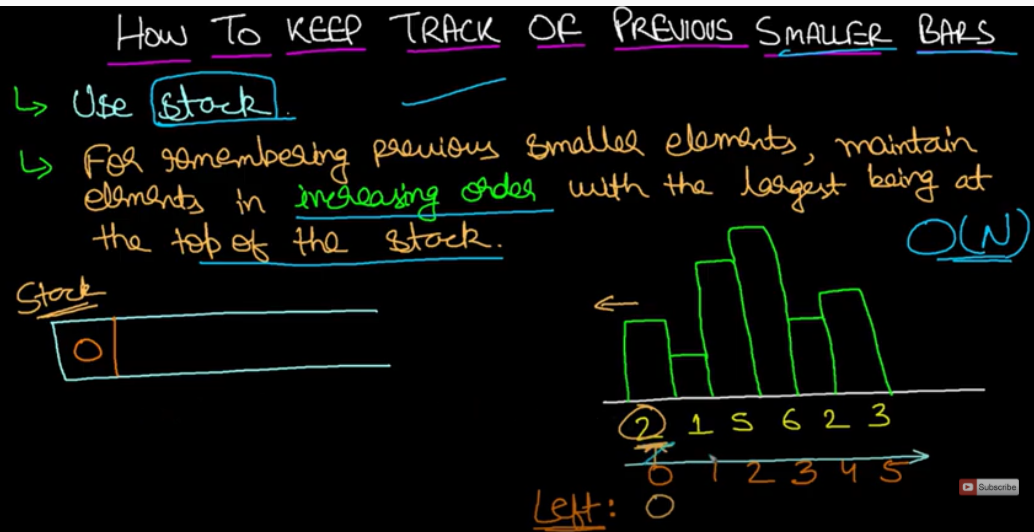 HOW TO KEEP TRACK OF PREVIOUS SMALLER BARS
Use stack.
For remembering previous smaller elements, maintain
elements in increasing order with the largest being at
the top of the stack.
O(N)
Stack
0
2 1 5 6 2 3
0 1 2 3 4 5
Subscribe
Left: 0